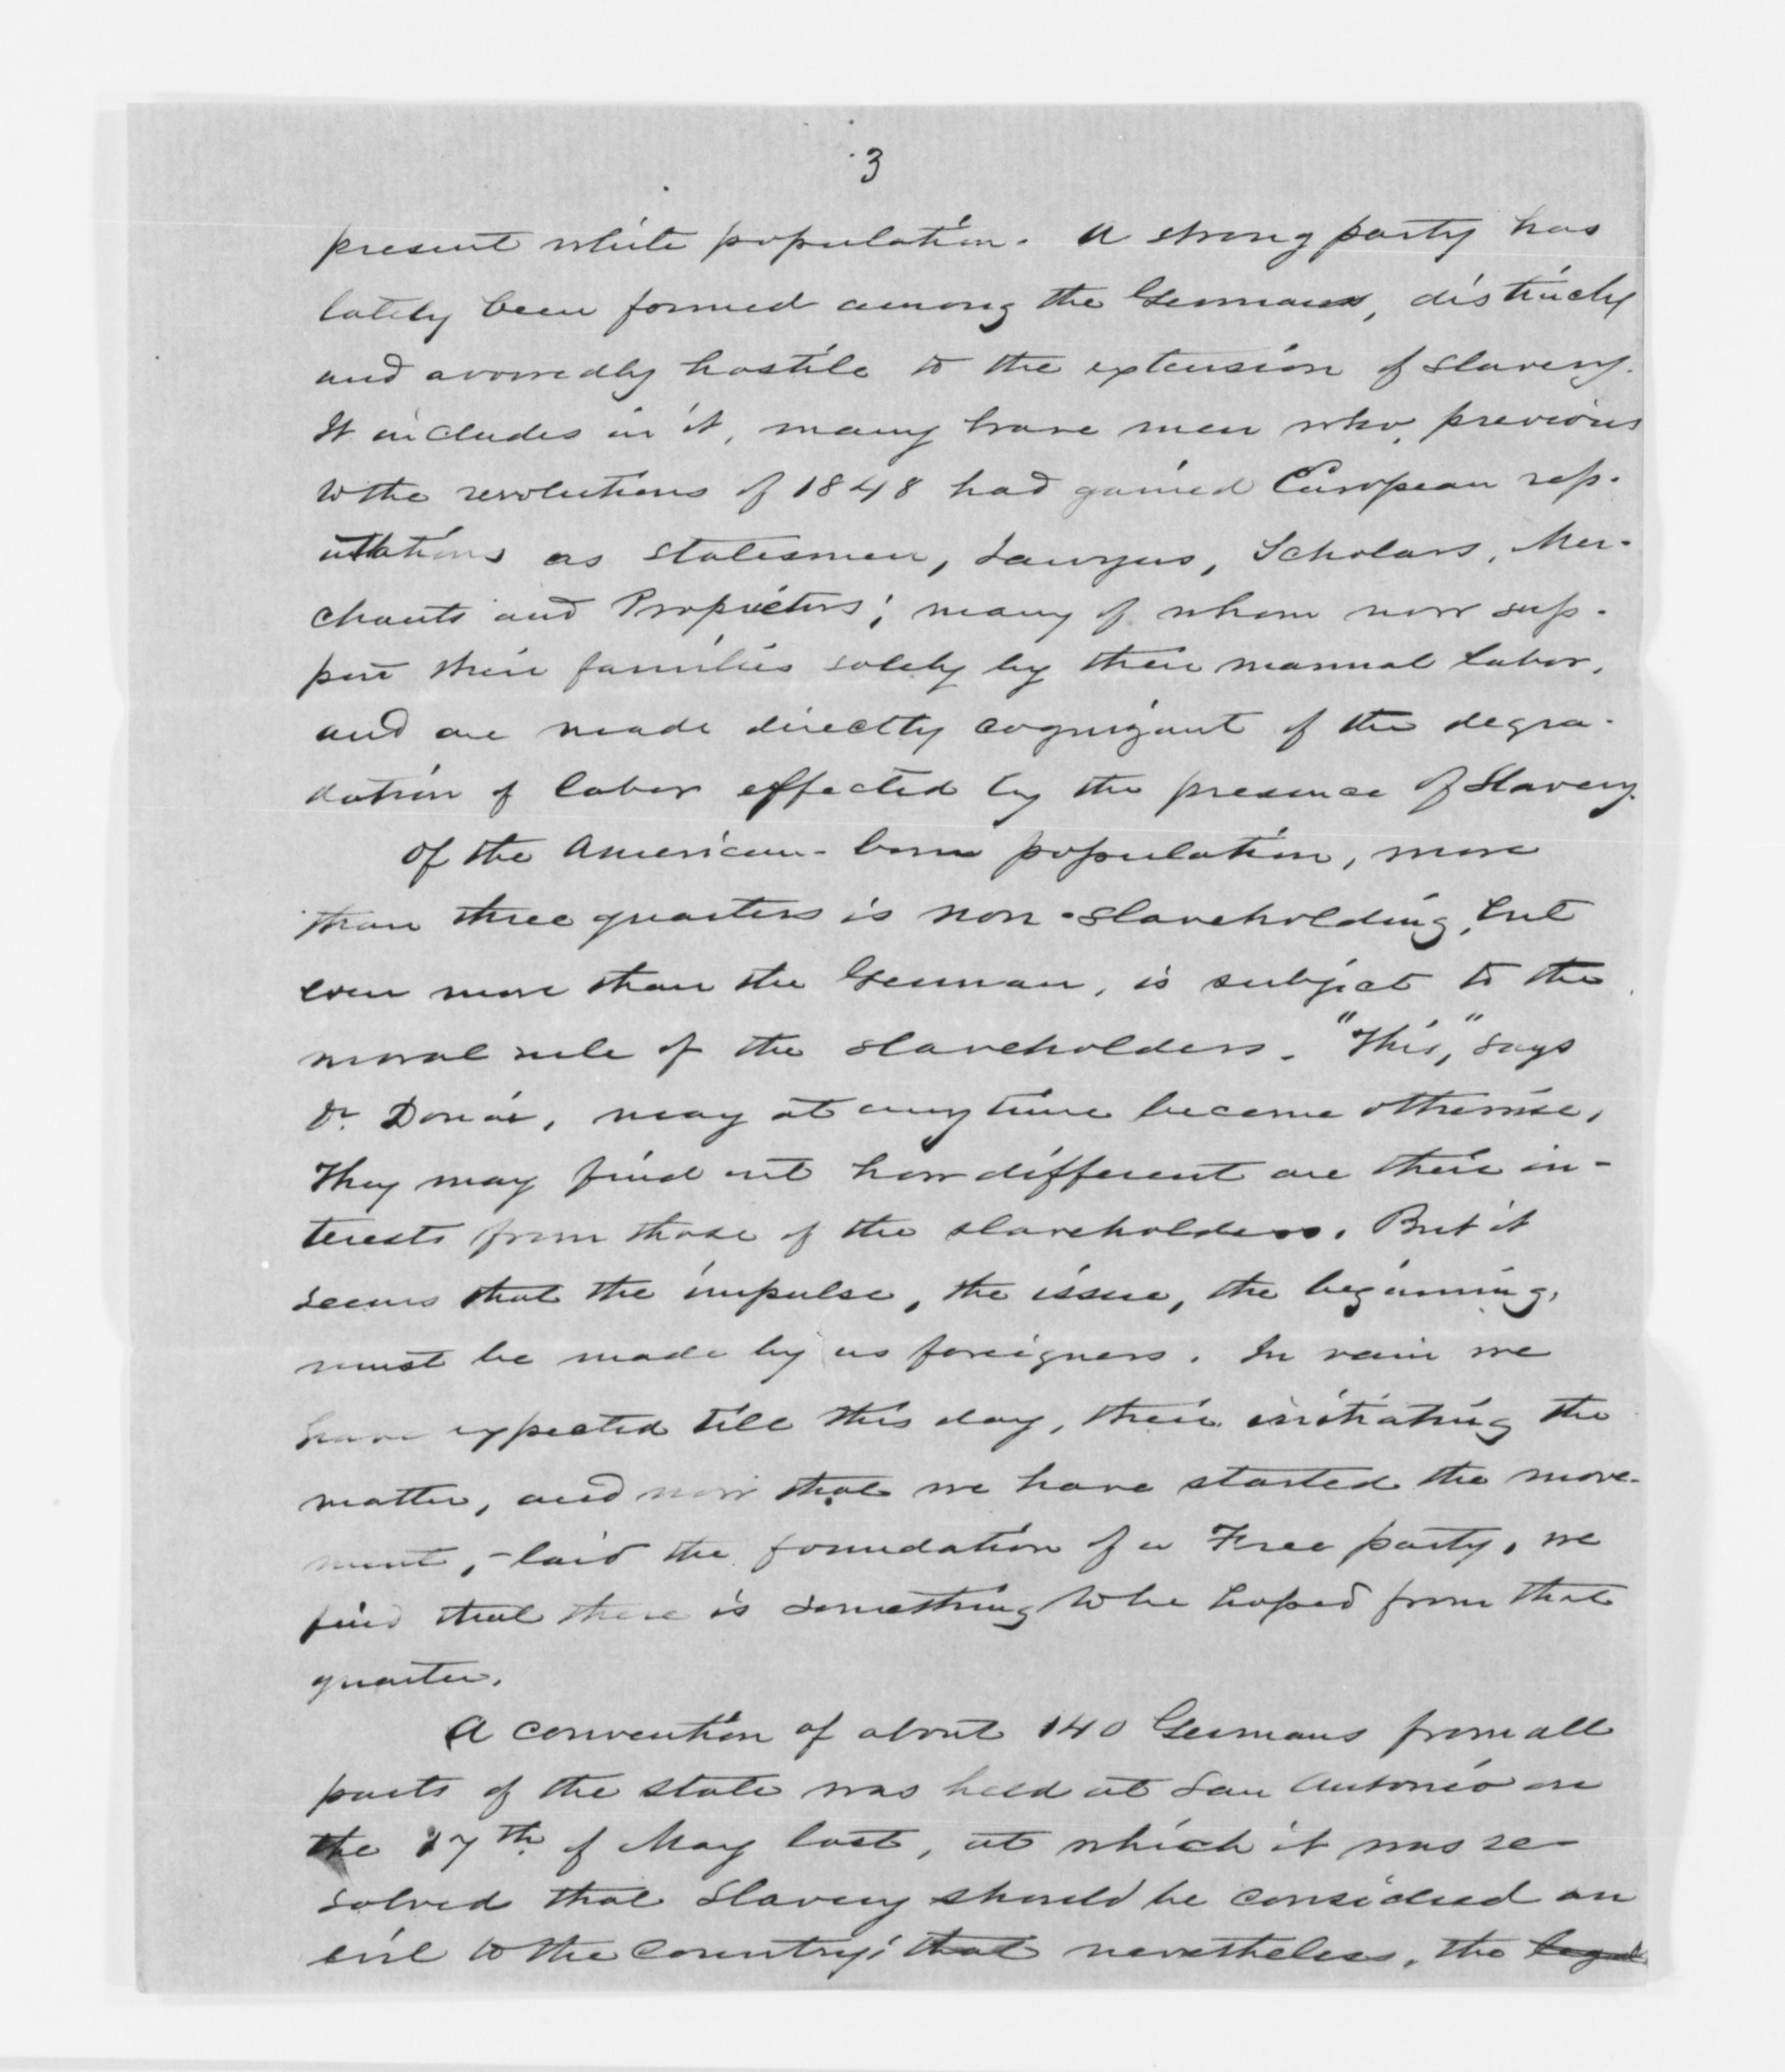 3
present white population. A strong party has
lately been formed among the Germans, distinctly
and avowedly hostile to the extension of slavery.
It includes in it, many brave men who, previous
to the revolutions of 1848 had gained European rep-
utations as Statesmen, Lawyers, Scholars, Mer-
chants and Proprietors; many of whom now sup-
port their families solely by their manual labor,
and are made directly cognizant of the degra-
dation of labor effected by the presence of Slavery.
Of the American-born population, more
than three quarters is non-slaveholding, but
even more than the German, is subject to the
moral rule of the slaveholders. "This," says
Dr. Douai, may at any time become otherwise,
They may find out how different are their in-
terests from those of the slaveholders. But it
seems that the impulse, the issue, the beginning,
must be made by us foreigners. In vain we
have expected till this day, their initiating the
matter, and now that we have started the move-
ment, - laid the foundation of a Free party, we
find that there is something to be hoped from that
quarter.
A convention of about 140 Germans from all
parts of the state was held at San Antonio on
the 17th of May last, at which it was re-
solved that Slavery should be considered an
evil to the Country; that nevertheless, the legal